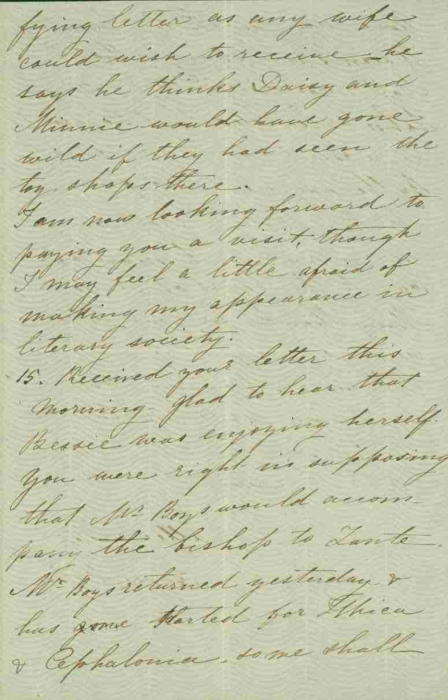 fying letter as any wife
could wish to receive he
says he thinks Daisy and
Minnie would have gone
wild if they had seen the
toy shops there.
I am now looking forward to
paying you a visit, though
I may feel a little afraid of
making my appearance in
literary society.
15. Received your letter this
morning glad to hear that
Bessie was enjoying herself.
You were right in supposing
that Mr Boys would accom-
pany the bishop to Zante
Mr Boys returned yesterday &
has started for Ithica
& Cephalonia, some shall